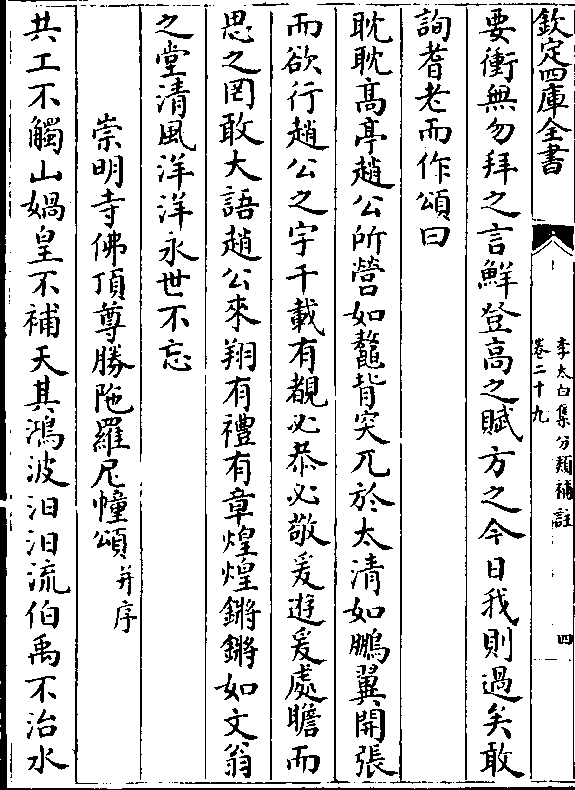 欽定四庫全書
李太白集分類補註
卷二十九
四
要衝無勿拜之言鮮登高之賦方之今日我則過矣敢
詢耆老而作頌曰
耽耽高亭趙公所營如鼇背突兀於太清如鵬翼開張
而欲行趙公之宇千載有覩必恭必敬爰遊爰處瞻而
思之罔敢大語趙公來翔有禮有章煌煌鏘鏘如文翁
之堂清風洋洋永世不忘
崇明寺佛頂尊勝陁羅尼幢頌并序
共工不觸山媧皇不補天其鴻波汨汨流伯禹不治水